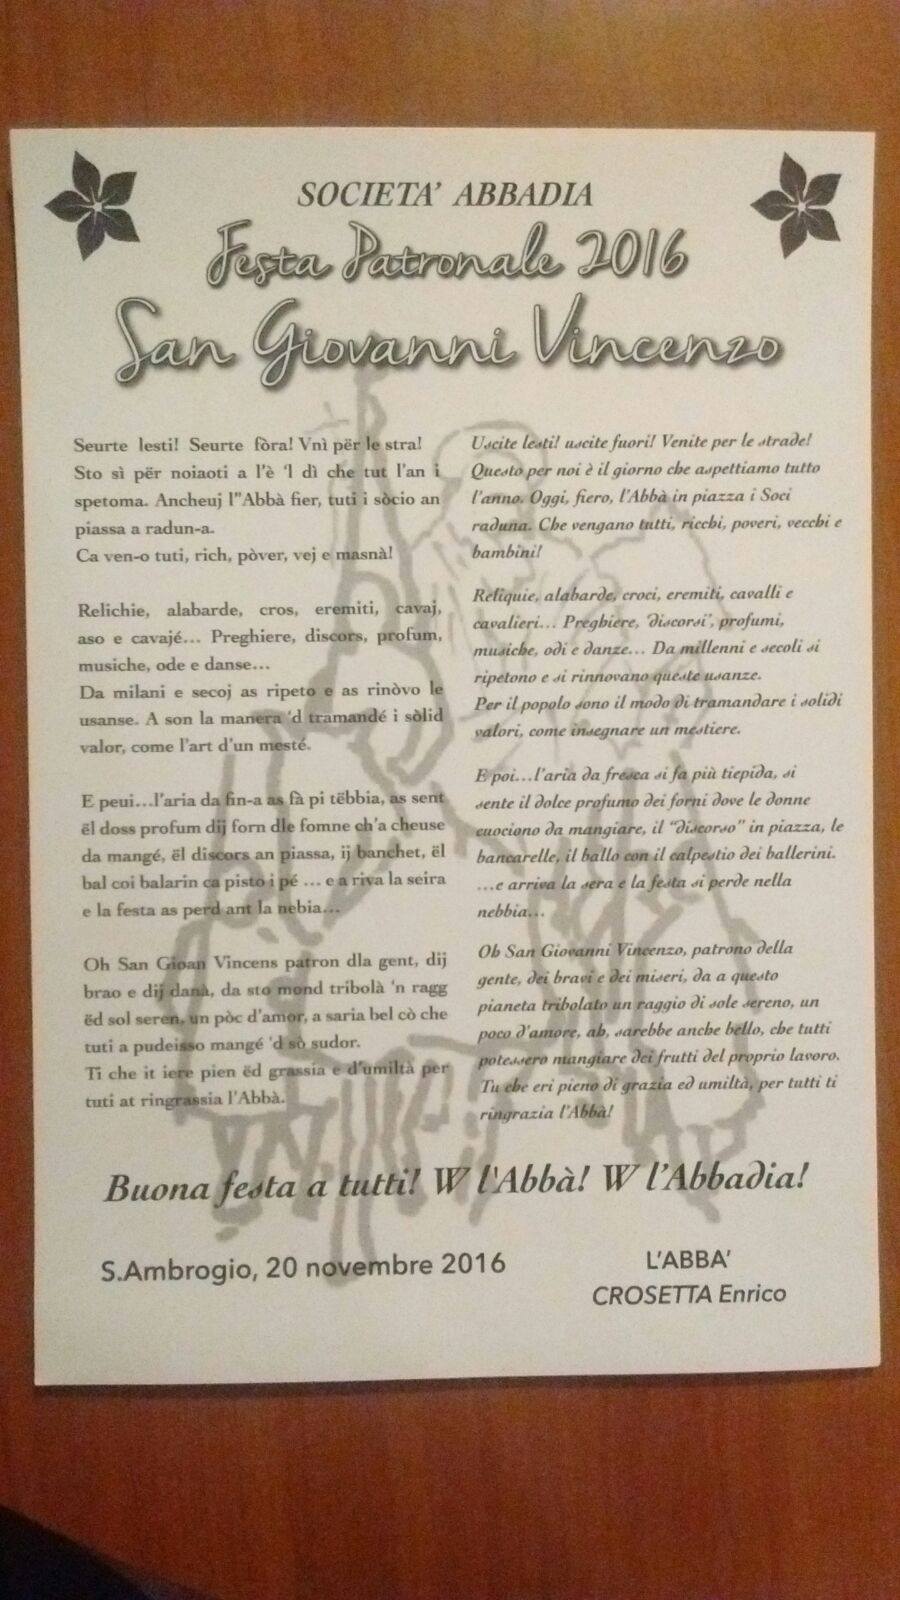 SOCIETA' ABBADIA
Festa Patronale 2016
San Giovanni Vincenzo
Seurte lesti! Seurte fòra! Vnì për le stra!
Sto sì për noiaoti a l'è 'l dì che tut l'an i
spetoma. Ancheuj l''Abbà fier, tuti i sòcio an
piassa a radun-a.
Ca ven-o tuti, rich, pòver, vej e masnà!
Relichie, alabarde, cros, eremiti, cavaj,
aso e cavajé... Preghiere, discors, profum,
musiche, ode e danse...
Da milani e secoj as ripeto e as rinòvo le
usanse. A son la manera 'd tramandé i sòlid
valor, come l'art d'un mesté.
E peui...l'aria da fin-a as fà pi tëbbia, as sent
ël doss profum dij forn dle fomne ch'a cheuse
da mangé, ël discors an piassa, ij banchet, ël
bal coi balarin ca pisto i pé ... e a riva la seira
e la festa as perd ant la nebia...
Oh San Gioan Vincens patron dla gent, dij
brao e dij danà, da sto mond tribolà 'n ragg
ëd sol seren, un pòc d'amor, a saria bel cò che
tuti a pudeisso mangé 'd sò sudor.
Ti che it iere pien ëd grassia e d'umiltà per
tuti at ringrassia l'Abbà.
Uscite lesti! uscite fuori! Venite per le strade!
Questo per noi è il giorno che aspettiamo tutto
l'anno. Oggi, fiero, l'Abbà in piazza i Soci
raduna. Che vengano tutti, ricchi, poveri, vecchi e
bambini!
Reliquie, alabarde, croci, eremiti, cavalli e
cavalieri... Preghiere, 'discorsi', profumi,
musiche, odi e danze... Da millenni e secoli si
ripetono e si rinnovano queste usanze.
Per il popolo sono il modo di tramandare i solidi
valori, come insegnare un mestiere.
E poi...l'aria da fresca si fa più tiepida, si
sente il dolce profumo dei forni dove le donne
cuociono da mangiare, il "discorso" in piazza, le
bancarelle, il ballo con il calpestio dei ballerini.
...e arriva la sera e la festa si perde nella
nebbia...
Oh San Giovanni Vincenzo, patrono della
gente, dei bravi e dei miseri, da a questo
pianeta tribolato un raggio di sole sereno, un
poco d'amore, ah, sarebbe anche bello, che tutti
potessero mangiare dei frutti del proprio lavoro.
Tu che eri pieno di grazia ed umiltà, per tutti ti
ringrazia l'Abbà!
Buona festa a tutti! W l'Abbà! W l'Abbadia!
S.Ambrogio, 20 novembre 2016
L'ABBA'
CROSETTA Enrico